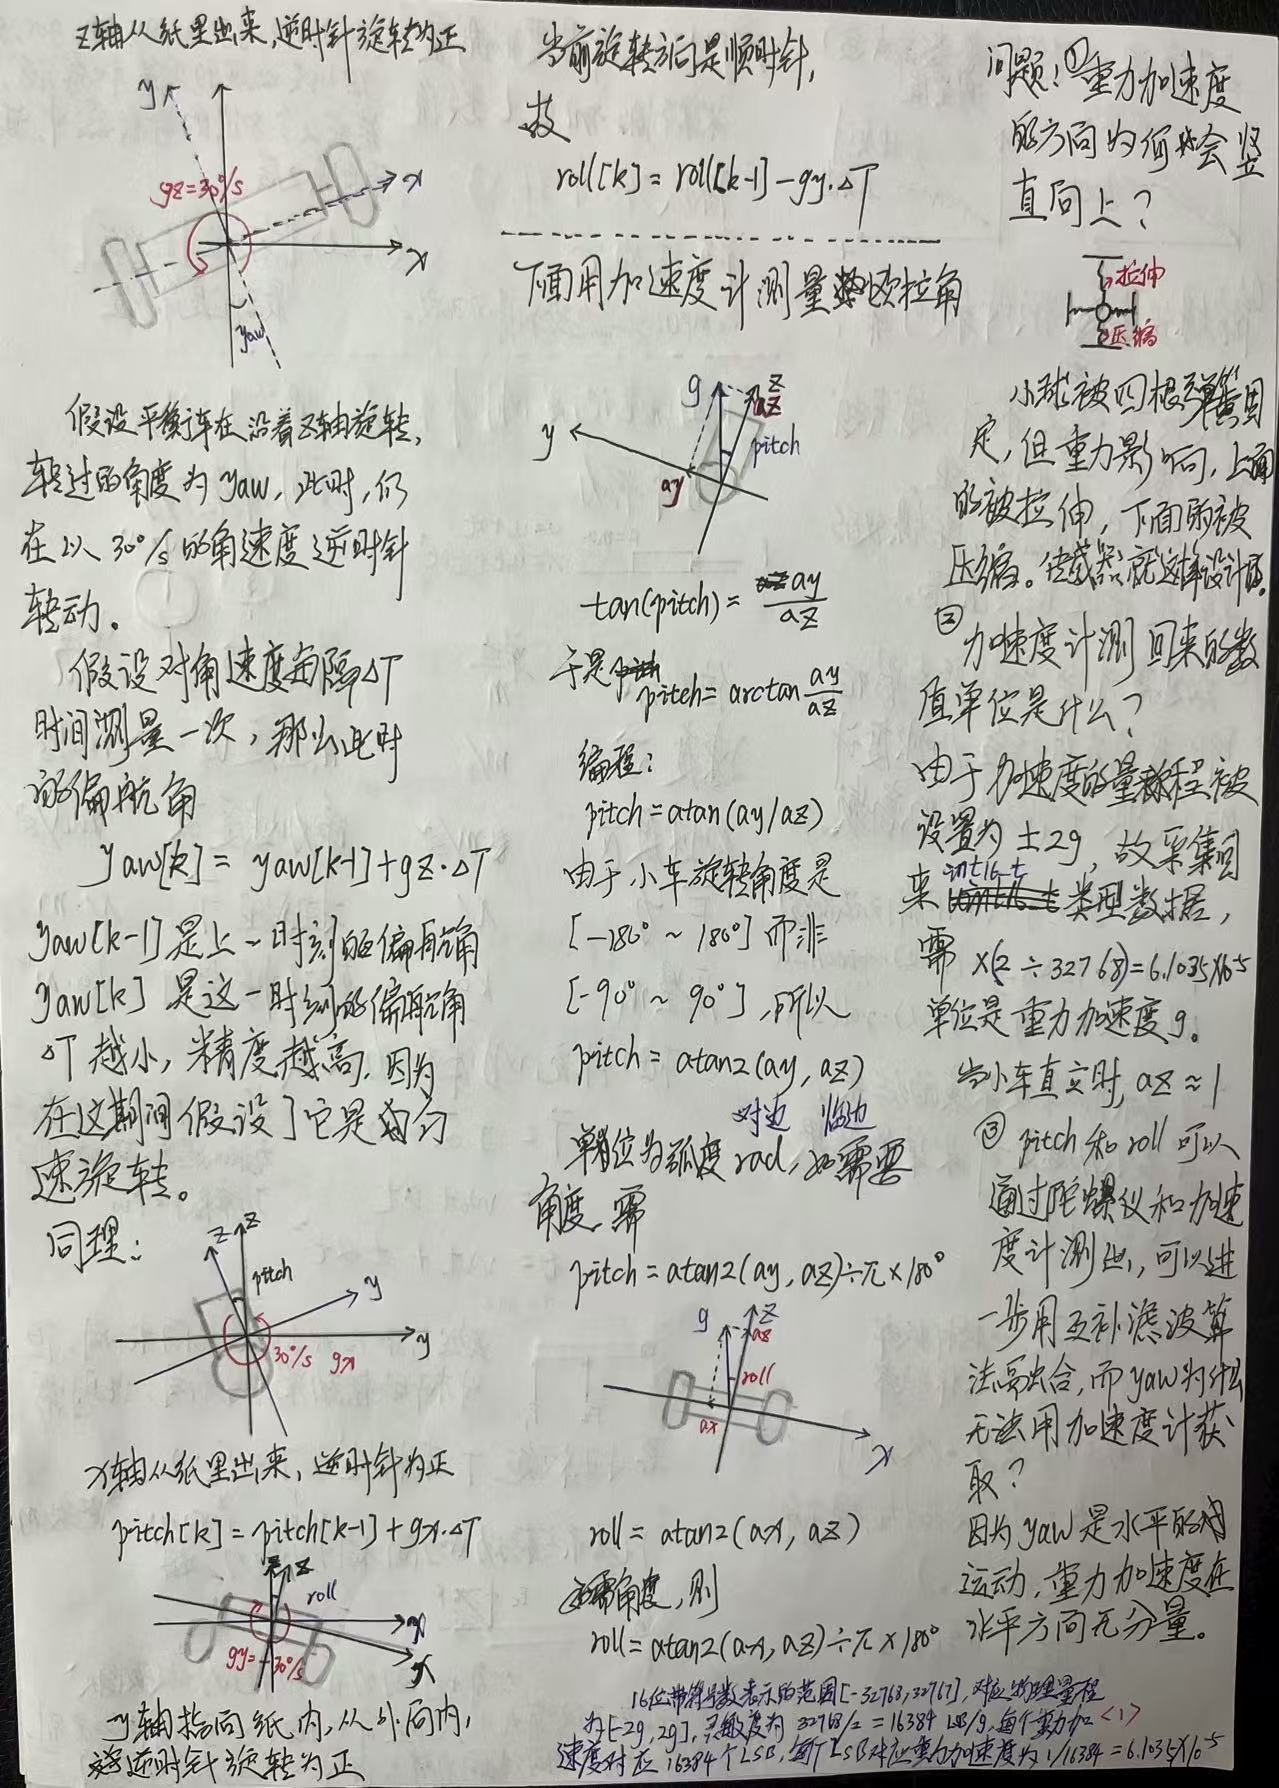 z轴从纸里出来,逆时针旋转为正
y
gz=30°/s
x
x
yaw
假设平衡车在沿着z轴旋转,
转过的角度为yaw,此时,仍
在以30°/s的角速度逆时针
转动。
假设对角速度每隔△T
时间测量一次,那么此时
的偏航角
yaw[k] = yaw[k-1]+gz·△T
yaw[k-1]是上一时刻的偏航角
yaw[k] 是这一时刻的偏航角
△T越小,精度越高,因为
在这期间假设了它是匀
速旋转。
同理:
z z
pitch
y
y
30°/s gx
x轴从纸里出来,逆时针为正
pitch[k] = pitch[k-1] + gx·△T
z
roll
x
x
gy=-30°/s
y轴指向纸内,从外向内,
逆时针旋转为正
当前旋转方向是顺时针,
故
roll[k] = roll[k-1] - gy·△T
下面用加速度计测量欧拉角
g z
az
y
pitch
ay
tan(pitch) = ay/az
于是
pitch = arctan ay/az
编程:
pitch=atan(ay/az)
由于小车旋转角度是
[-180°~180°]而非
[-90°~90°],所以
pitch = atan2(ay, az)
对边 临边
单位为弧度rad,如需要
角度,需
pitch=atan2(ay, az)÷π×180°
g z
az
roll
ax
x
roll = atan2(ax, az)
需角度,则
roll=atan2(ax, az)÷π×180°
问题:①重力加速度
的方向为何会竖
直向上?
拉伸
压缩
小球被四根弹簧固
定,但重力影响,上面
的被拉伸,下面的被
压缩。传感器就这样设计的。
② 加速度计测回来的数
值单位是什么?
由于加速度的量程被
设置为±2g,故采集回
来int16_t类型数据,
需×(2÷32768)=6.1035×10-5
单位是重力加速度g。
当小车直立时,az≈1
③ pitch和roll可以
通过陀螺仪和加速
度计测出,可以进
一步用互补滤波算
法融合,而yaw为什么
无法用加速度计获
取?
因为yaw是水平的
运动,重力加速度在
水平方向无分量。
16位带符号数表示的范围[-32768,32767],对应物理量程
为[-2g,2g],灵敏度为 32768/2 = 16384 LSB/g,每个重力加<1>
速度对应16384个LSB,每个LSB对应重力加速度为1/16384=6.1035×10-5